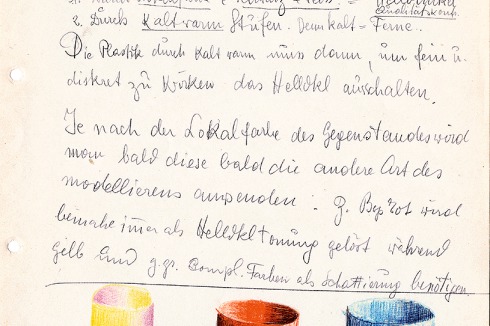 2. Durch kaltwarm Stufen. Denn kalt = Ferne.
Die Plastik durch kalt warm muss dann, um fein u.
diskret zu wirken das Helldkl ausschalten.
Je nach der Lokalfarbe des Gegenstandes wird
man bald diese bald die andere Art des
modellierens anwenden. z. Bsp. rot wird
beinahe immer als Helldkl tonung gelöst während
gelb und Compl. Farben als Schattierung benötigen.